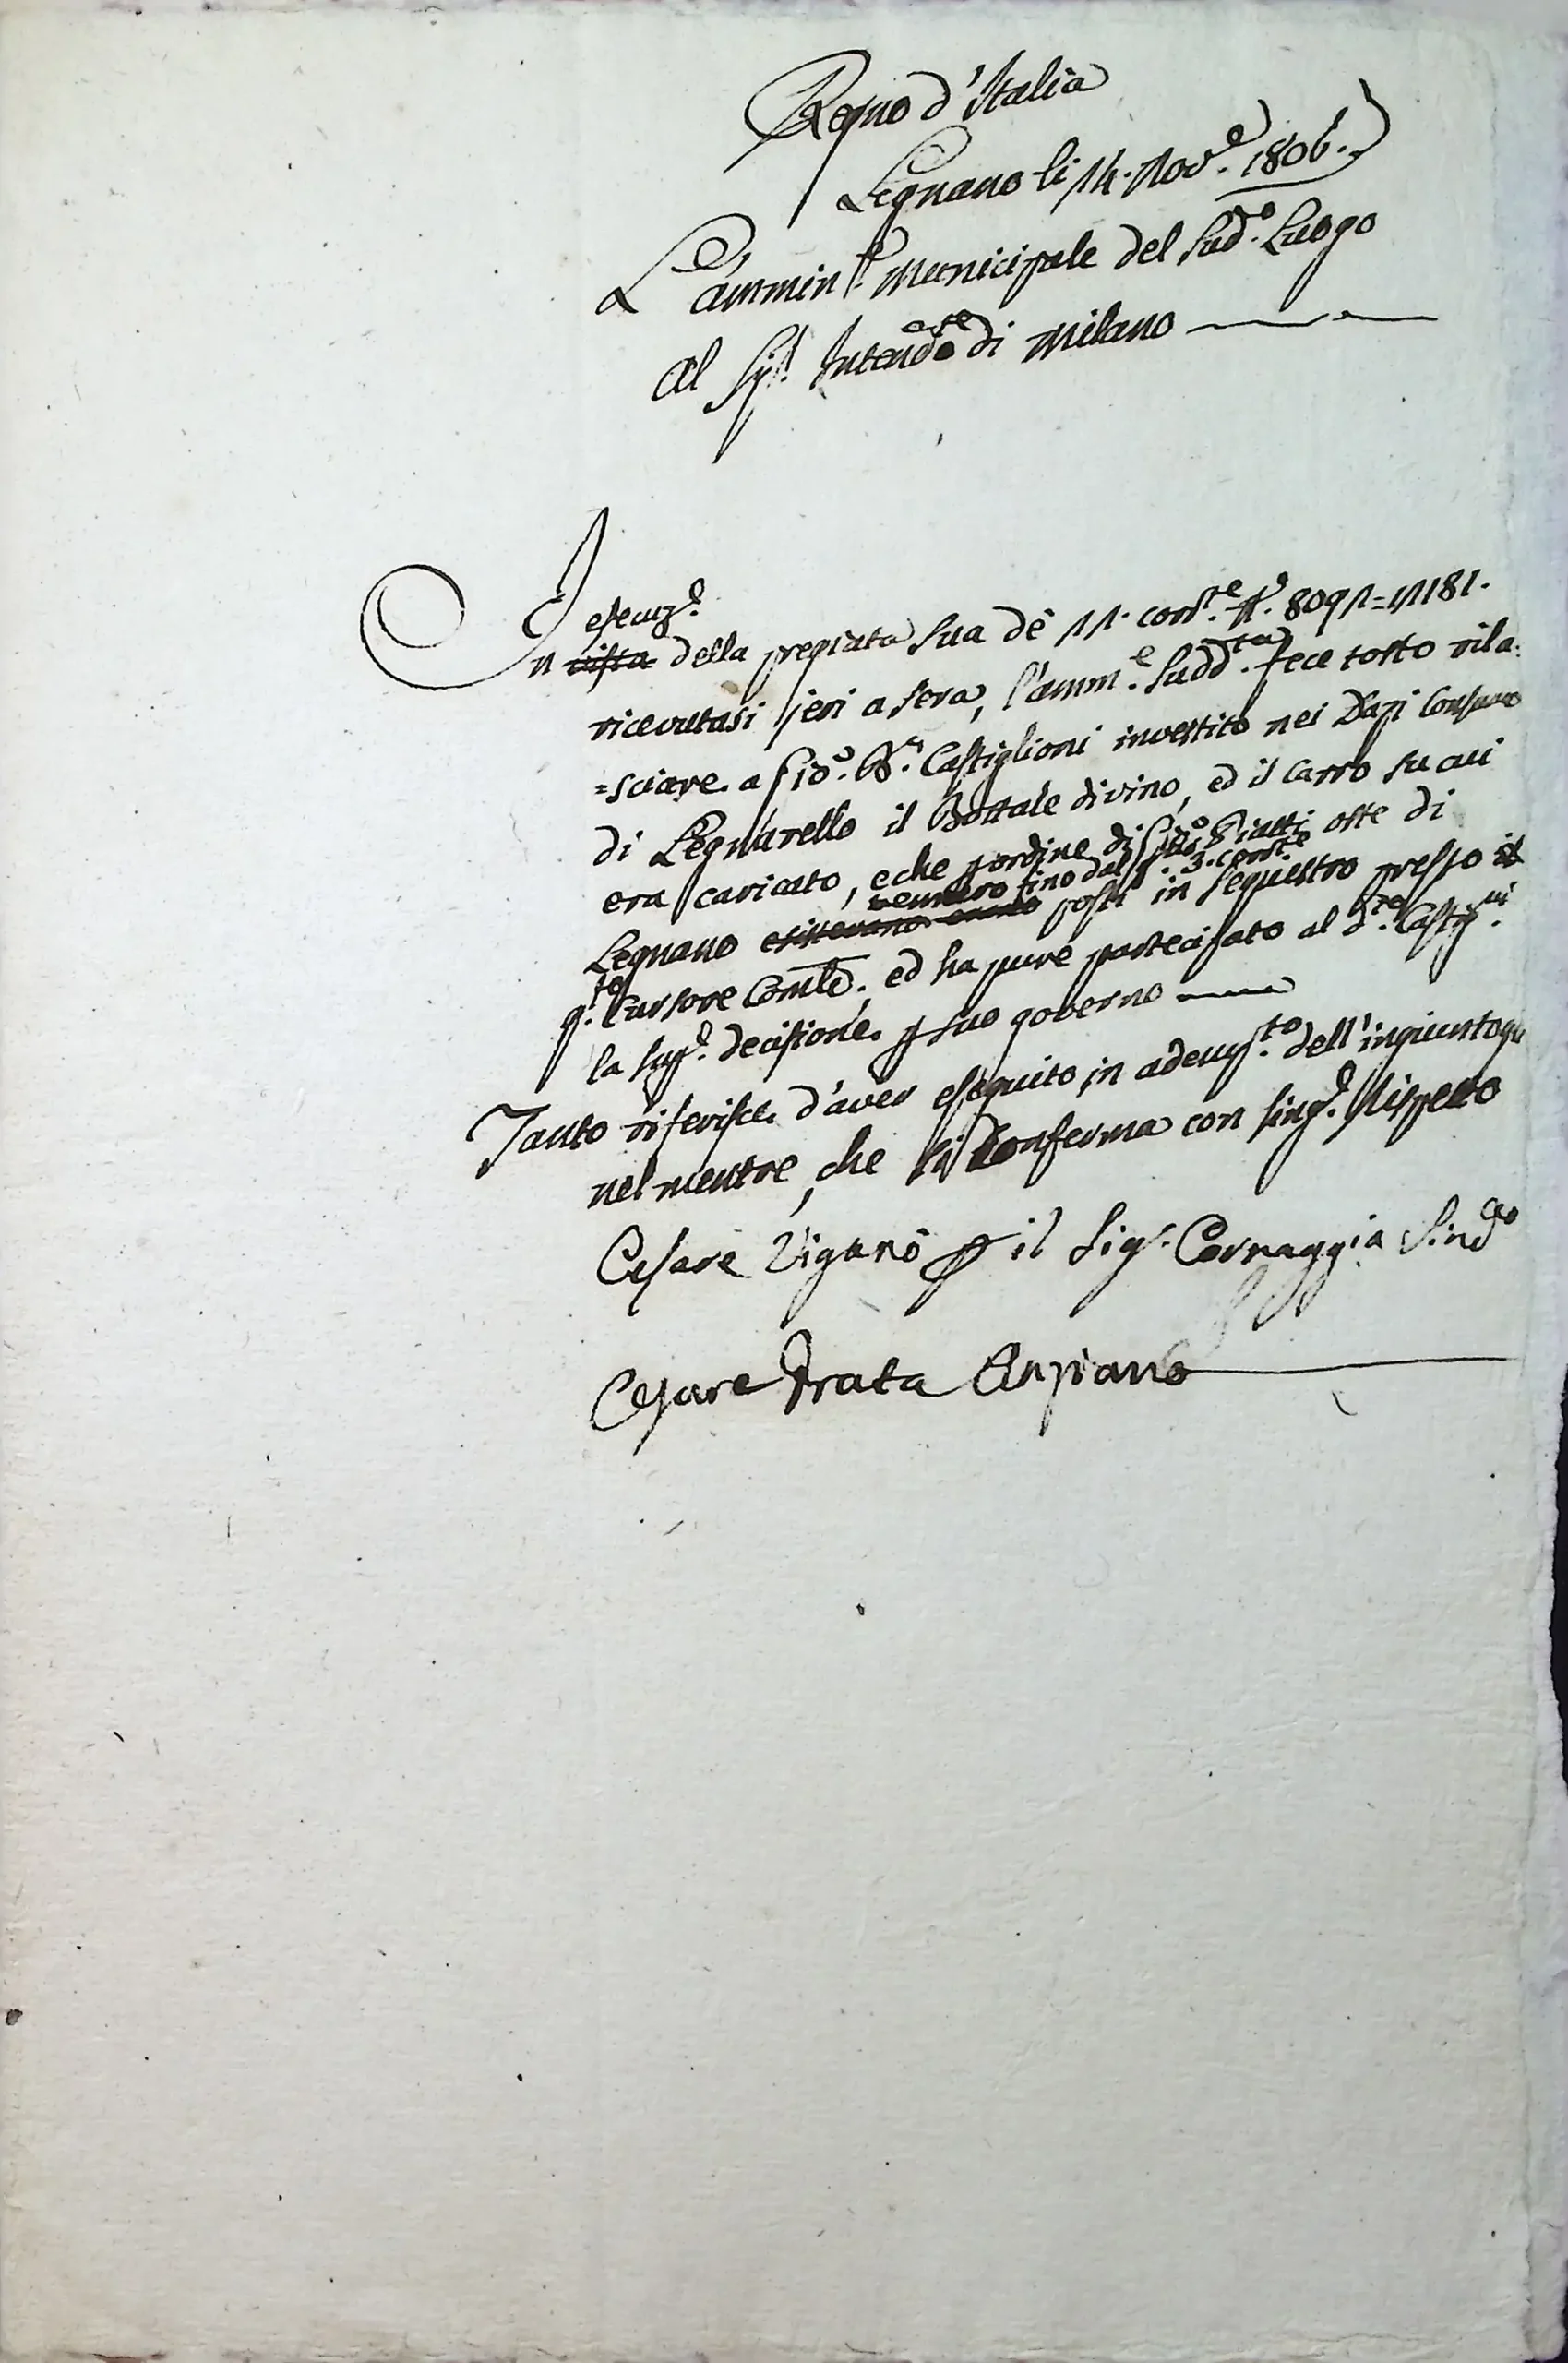 Regno d'Italia
Legnano li 14. Nov.e 1806.
L'ammin.e Municipale del sud.o Luogo
Al Sig.r Intend.e di Milano
esecuz.e
In vista della pregiata sua de 11. corr.te N.o 8091=11181.
ricevutasi jeri a sera, l'amm.e sudd.ta fece tosto rila:
=sciare a Gio. B.a Castiglioni investito nei Dazi Consumo
di Legnarello il Bottale di vino, ed il Carro su cui
era caricato, e che p ordine di Gio. Piatti oste di
vennero fino dal g. 3. corr.te
Legnano esistevano posti in sequestro presso il
q.to Cursore Com.le, ed ha pure partecipato al d.to Castig.ni
la sup.e decisione p suo governo
Tanto riferisce d'aver eseguito in adempi.to dell'ingiuntogli
nel mentre, che si conferma con sing.e rispetto
Cesare Viganò p il Sig.r Cornaggia Sind.co
Cesare Prata Anziano